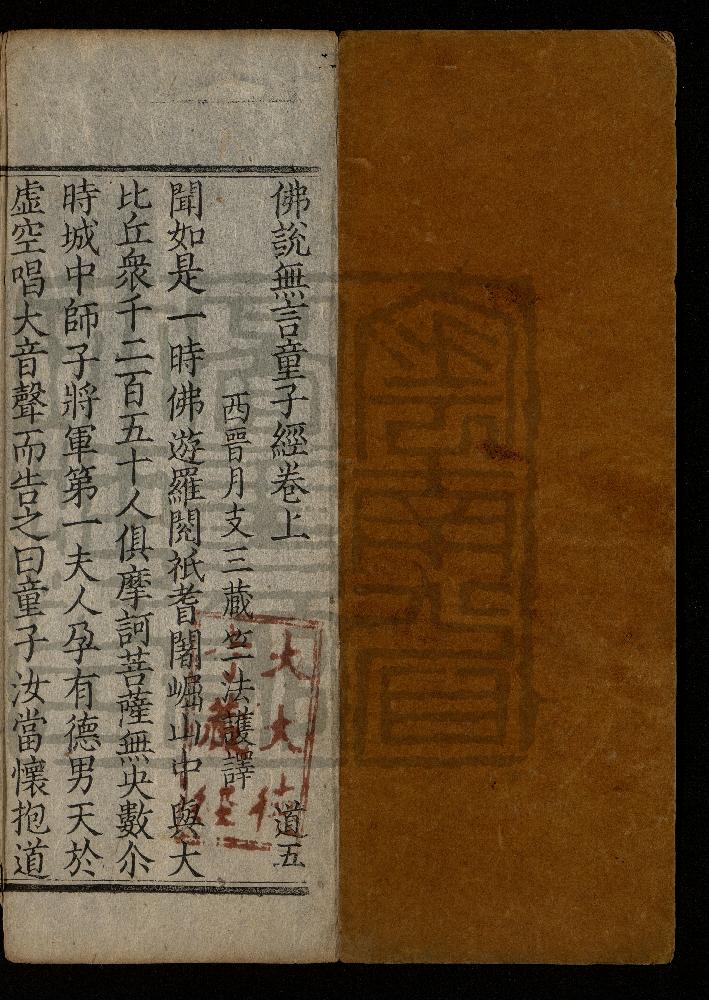 佛說無言童子經卷上
道五
西晋月支三藏竺法護譯
聞如是一時佛遊羅閱祇耆闍崛山中與大
比丘衆千二百五十人俱摩訶菩薩無央數尒
時城中師子將軍第一夫人孕有德男天於
虛空唱大音聲而告之曰童子汝當懷抱道